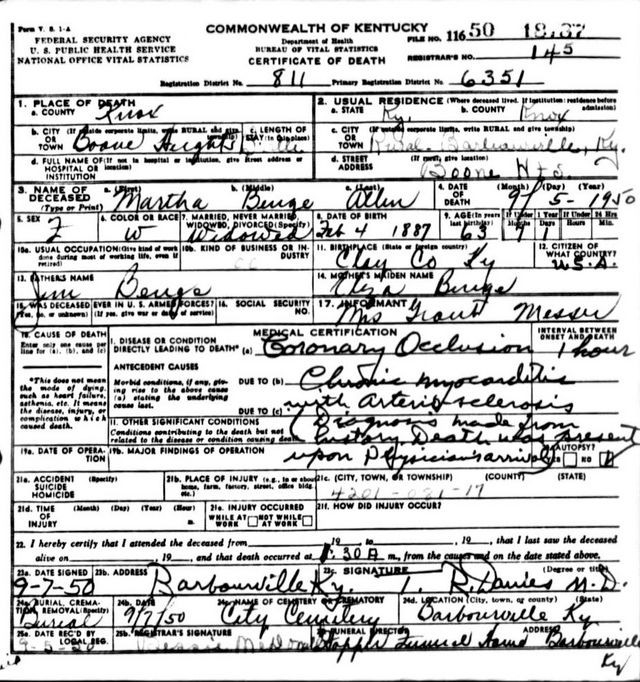 Form V. S. 1-A
FEDERAL SECURITY AGENCY
U. S. PUBLIC HEALTH SERVICE
NATIONAL OFFICE VITAL STATISTICS
COMMONWEALTH OF KENTUCKY
Department of Health
BUREAU OF VITAL STATISTICS
CERTIFICATE OF DEATH
FILE NO. 116 50
REGISTRAR'S NO. 145
Registration District No. 811 Primary Registration District No. 6351
1. PLACE OF DEATH
a. COUNTY Knox
2. USUAL RESIDENCE (Where deceased lived. If institution: residence before admission)
a. STATE Ky. b. COUNTY Knox
b. CITY (If outside corporate limits, write RURAL and give township) OR TOWN Boone Heights
c. LENGTH OF STAY (in this place)
c. CITY (If outside corporate limits, write RURAL and give township) OR TOWN Rural- Barbourville, Ky.
d. FULL NAME OF (If not in hospital or institution, give street address or location) HOSPITAL OR INSTITUTION
d. STREET ADDRESS (If rural, give location) Boone Hts.
3. NAME OF DECEASED (Type or Print) a. (First) b. (Middle) c. (Last)
Martha Benge Allen
4. DATE OF DEATH (Month) (Day) (Year) 9- 5-1950
5. SEX F
6. COLOR OR RACE W
7. MARRIED, NEVER MARRIED, WIDOWED, DIVORCED (Specify) Widowed
8. DATE OF BIRTH Feb 4 1887
9. AGE (In years last birthday) 63 If Under 1 Year If Under 24 Hrs
10a. USUAL OCCUPATION (Give kind of work done during most of working life, even if retired)
10b. KIND OF BUSINESS OR INDUSTRY
11. BIRTHPLACE (State or foreign country) Clay Co Ky
12. CITIZEN OF WHAT COUNTRY? U.S.A.
13. FATHER'S NAME Jim Benge
14. MOTHER'S MAIDEN NAME Eliza Benge
15. WAS DECEASED EVER IN U. S. ARMED FORCES? (Yes, no, or unknown) (If yes, give war or dates of service)
16. SOCIAL SECURITY NO.
17. INFORMANT Mrs Grant Messer
18. CAUSE OF DEATH
Enter only one cause per line for (a), (b), and (c)
MEDICAL CERTIFICATION
INTERVAL BETWEEN ONSET AND DEATH
I. DISEASE OR CONDITION DIRECTLY LEADING TO DEATH* (a) Coronary Occlusion 1 hour
*This does not mean the mode of dying, such as heart failure, asthenia, etc. It means the disease, injury, or complication which caused death.
ANTECEDENT CAUSES
Morbid conditions, if any, giving rise to the above cause (a) stating the underlying cause last.
DUE TO (b) Chronic myocarditis
DUE TO (c) with Arteriosclerosis
II. OTHER SIGNIFICANT CONDITIONS
Conditions contributing to the death but not related to the disease or condition causing death.
(Diagnosis made from history Death was present upon Physicians arrival)
19a. DATE OF OPERATION
19b. MAJOR FINDINGS OF OPERATION
20. AUTOPSY? YES NO
21a. ACCIDENT SUICIDE HOMICIDE (Specify)
21b. PLACE OF INJURY (e.g., in or about home, farm, factory, street, office bldg. etc.)
21c. (CITY, TOWN, OR TOWNSHIP) (COUNTY) (STATE)
4201-031-17
21d. TIME OF INJURY (Month) (Day) (Year) (Hour)
21e. INJURY OCCURRED WHILE AT WORK NOT WHILE AT WORK
21f. HOW DID INJURY OCCUR?
22. I hereby certify that I attended the deceased from , 19 to , 19 , that I last saw the deceased
alive on , 19 , and that death occurred at 1:30 A m., from the causes and on the date stated above.
23a. DATE SIGNED 9-7-50
23b. ADDRESS Barbourville Ky.
23c. SIGNATURE (Degree or title) R. Davies M.D.
24a. BURIAL, CREMATION, REMOVAL (Specify) Burial
24b. DATE 9/7/50
24c. NAME OF CEMETERY OR CREMATORY City Cemetery
24d. LOCATION (City, town, or county) (State) Barbourville Ky
25a. DATE REC'D BY LOCAL REG.
25b. REGISTRAR'S SIGNATURE
FUNERAL DIRECTOR ADDRESS
Hopper Funeral Home Barbourville Ky